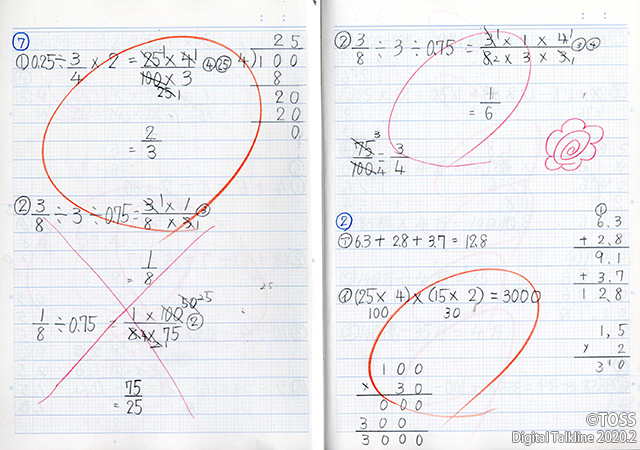 ⑦
① 0.25 ÷ 3/4 × 2 = 25 × 4 / 100 × 3 ④ ㉕
1 1
25 1
= 2/3
25
4)100
8
20
20
0
② 3/8 ÷ 3 ÷ 0.75 = 3 × 1 / 8 × 3 ③
1
1
= 1/8
1/8 ÷ 0.75 = 1 × 100 / 8 × 75 ②
50 25
4 2
= 75/25
② 3/8 ÷ 3 ÷ 0.75 = 3 × 1 × 4 / 8 × 3 × 3 ③ ④
1 1
2 1
= 1/6
75/100 = 3/4
3
4
②
① 6.3 + 2.8 + 3.7 = 12.8
①
6.3
+ 2.8
9.1
+ 3.7
12.8
(25 × 4) × (15 × 2) = 3000
100 30
1.5
× 2
3 0
100
× 30
000
300
3000
©TOSS
Digital Talkline 2020.2